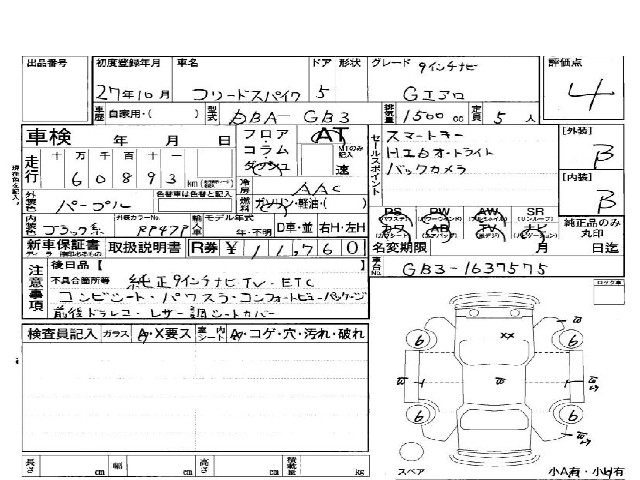 出品番号 初度登録年月 車名 ドア 形状 グレード 9インチナビ 評価点
27年10月 フリードスパイク 5 Gエアロ 4
車歴 自家用・( ) 型式 DBA-GB3 排気量 1500cc 定員 5人
車検 年 月 日 フロア コラム ダッシュ AT MTのみ記入 速
セールスポイント スマートキー
HIDオートライト
バックカメラ
[外装] B
[内装] B
走行 十 万 千 百 十 一
60893 km
冷房 AAC
燃料 ガソリン・軽油・( )
外装色 パープル 色替車は色替と記入
内装色 ブラック系 外装カラーNo. RP47P 輸入車 モデル年式 年・不明 D車・並 右H・左H
PS PW AW SR
カワ AB TV ナビ
純正品のみ丸印
新車保証書 取扱説明書 R券 ¥11,760 名変期限 月 日迄
車台No. GB3-1637575
注意事項 後日品【
不具合箇所等 純正9インチナビTV・ETC
コンビシート・パワスラ・コンフォートビューパッケージ
前後ドラレコ・レザー調シートカバー
検査員記入 ガラス A・X要ス 室内 シート A・コゲ・穴・汚れ・破れ
長さ cm 幅 cm 高さ cm 積載量 kg
6 6 6 6
××
スペア
小A有・小H有